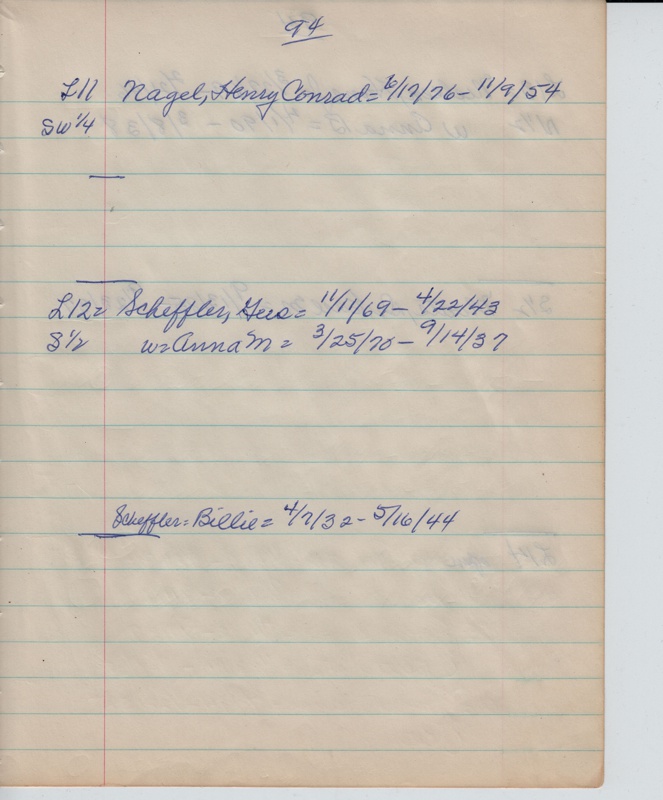 94
L11 Nagel, Henry Conrad = 6/17/76 - 11/9/54
SW 1/4
L12 = Scheffler, Geo = 11/11/69 - 4/22/43
S 1/2 w = Anna M = 3/25/70 - 9/14/37
Scheffler = Billie = 4/7/32 - 5/16/44